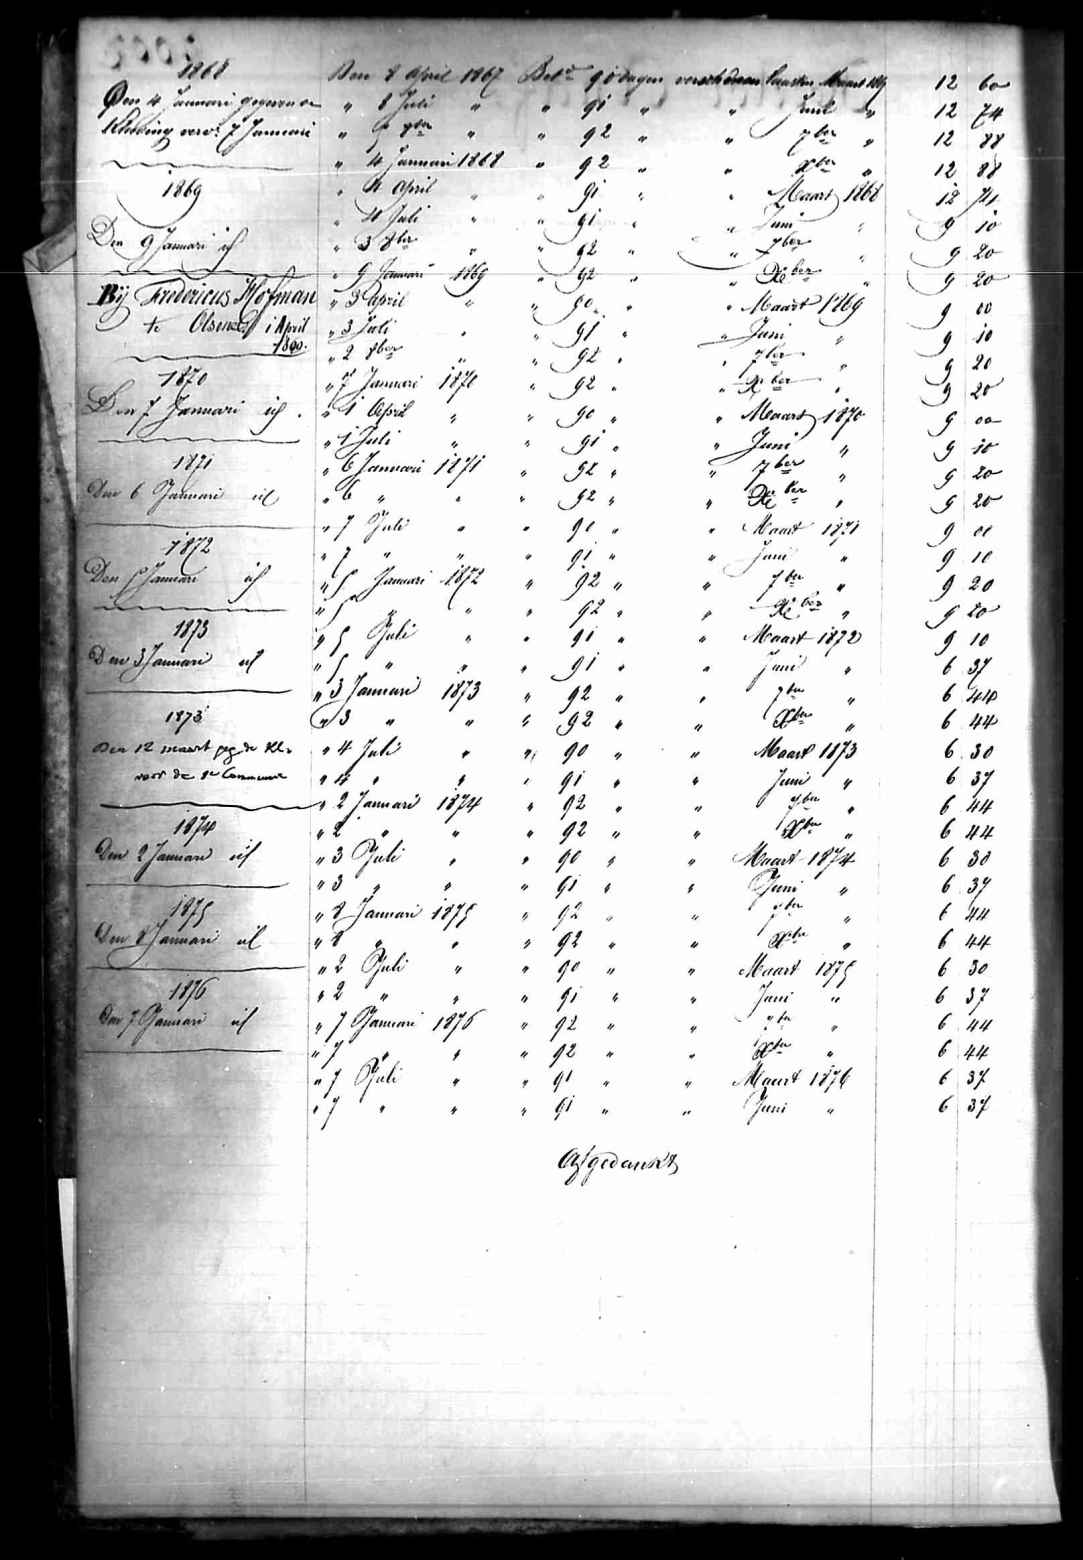 1868
Den 4 Januari gegeven en
Kleeding verv. 7 Januari
1869
Den 9 Januari id
Bij Fredericus Hofman
te 1 April
1870
Den 7 Januari id.
1871
Den 6 Januari id
1872
Den 5 Januari id
1873
Den 3 Januari id
1873
Den 12 maart geg. de Kl.
voor de 1e Communie
1874
Den 2 Januari id
1875
Den 8 Januari id
1876
Den 7 Januari id
Den 8 April 1867 Bet. 90 dagen verschenen Maart 1867 12 60
" 8 Juli " " 91 " " Juni " 12 74
" 7 8ber " " 92 " " 7ber " 12 88
" 4 Januari 1868 " 92 " " Xber " 12 88
" 4 April " " 91 " " Maart 1868 12 74
" 4 Juli " " 91 " " Juni " 9 10
" 3 8ber " " 92 " " 7ber " 9 20
" 9 Januari 1869 " 92 " " Xber " 9 20
" 3 April " " 90 " " Maart 1869 9 00
" 3 Juli " " 91 " " Juni " 9 10
" 2 8ber " " 92 " " 7ber " 9 20
" 7 Januari 1870 " 92 " " Xber " 9 20
" 1 April " " 90 " " Maart 1870 9 00
" 1 Juli " " 91 " " Juni " 9 10
" 6 Januari 1871 " 92 " " 7ber " 9 20
" 6 " " " 92 " " Xber " 9 20
" 7 Juli " " 90 " " Maart 1871 9 00
" 7 " " " 91 " " Juni " 9 10
" 5 Januari 1872 " 92 " " 7ber " 9 20
" 5 " " " 92 " " Xber " 9 20
" 5 Juli " " 91 " " Maart 1872 9 10
" 5 " " " 91 " " Juni " 6 37
" 3 Januari 1873 " 92 " " 7ber " 6 44
" 3 " " " 92 " " Xber " 6 44
" 4 Juli " " 90 " " Maart 1873 6 30
" 4 " " " 91 " " Juni " 6 37
" 2 Januari 1874 " 92 " " 7ber " 6 44
" 2 " " " 92 " " Xber " 6 44
" 3 Juli " " 90 " " Maart 1874 6 30
" 3 " " " 91 " " Juni " 6 37
" 8 Januari 1875 " 92 " " 7ber " 6 44
" 8 " " " 92 " " Xber " 6 44
" 2 Juli " " 90 " " Maart 1875 6 30
" 2 " " " 91 " " Juni " 6 37
" 7 Januari 1876 " 92 " " 7ber " 6 44
" 7 " " " 92 " " Xber " 6 44
" 7 Juli " " 91 " " Maart 1876 6 37
" 7 " " " 91 " " Juni " 6 37
Afgedankt